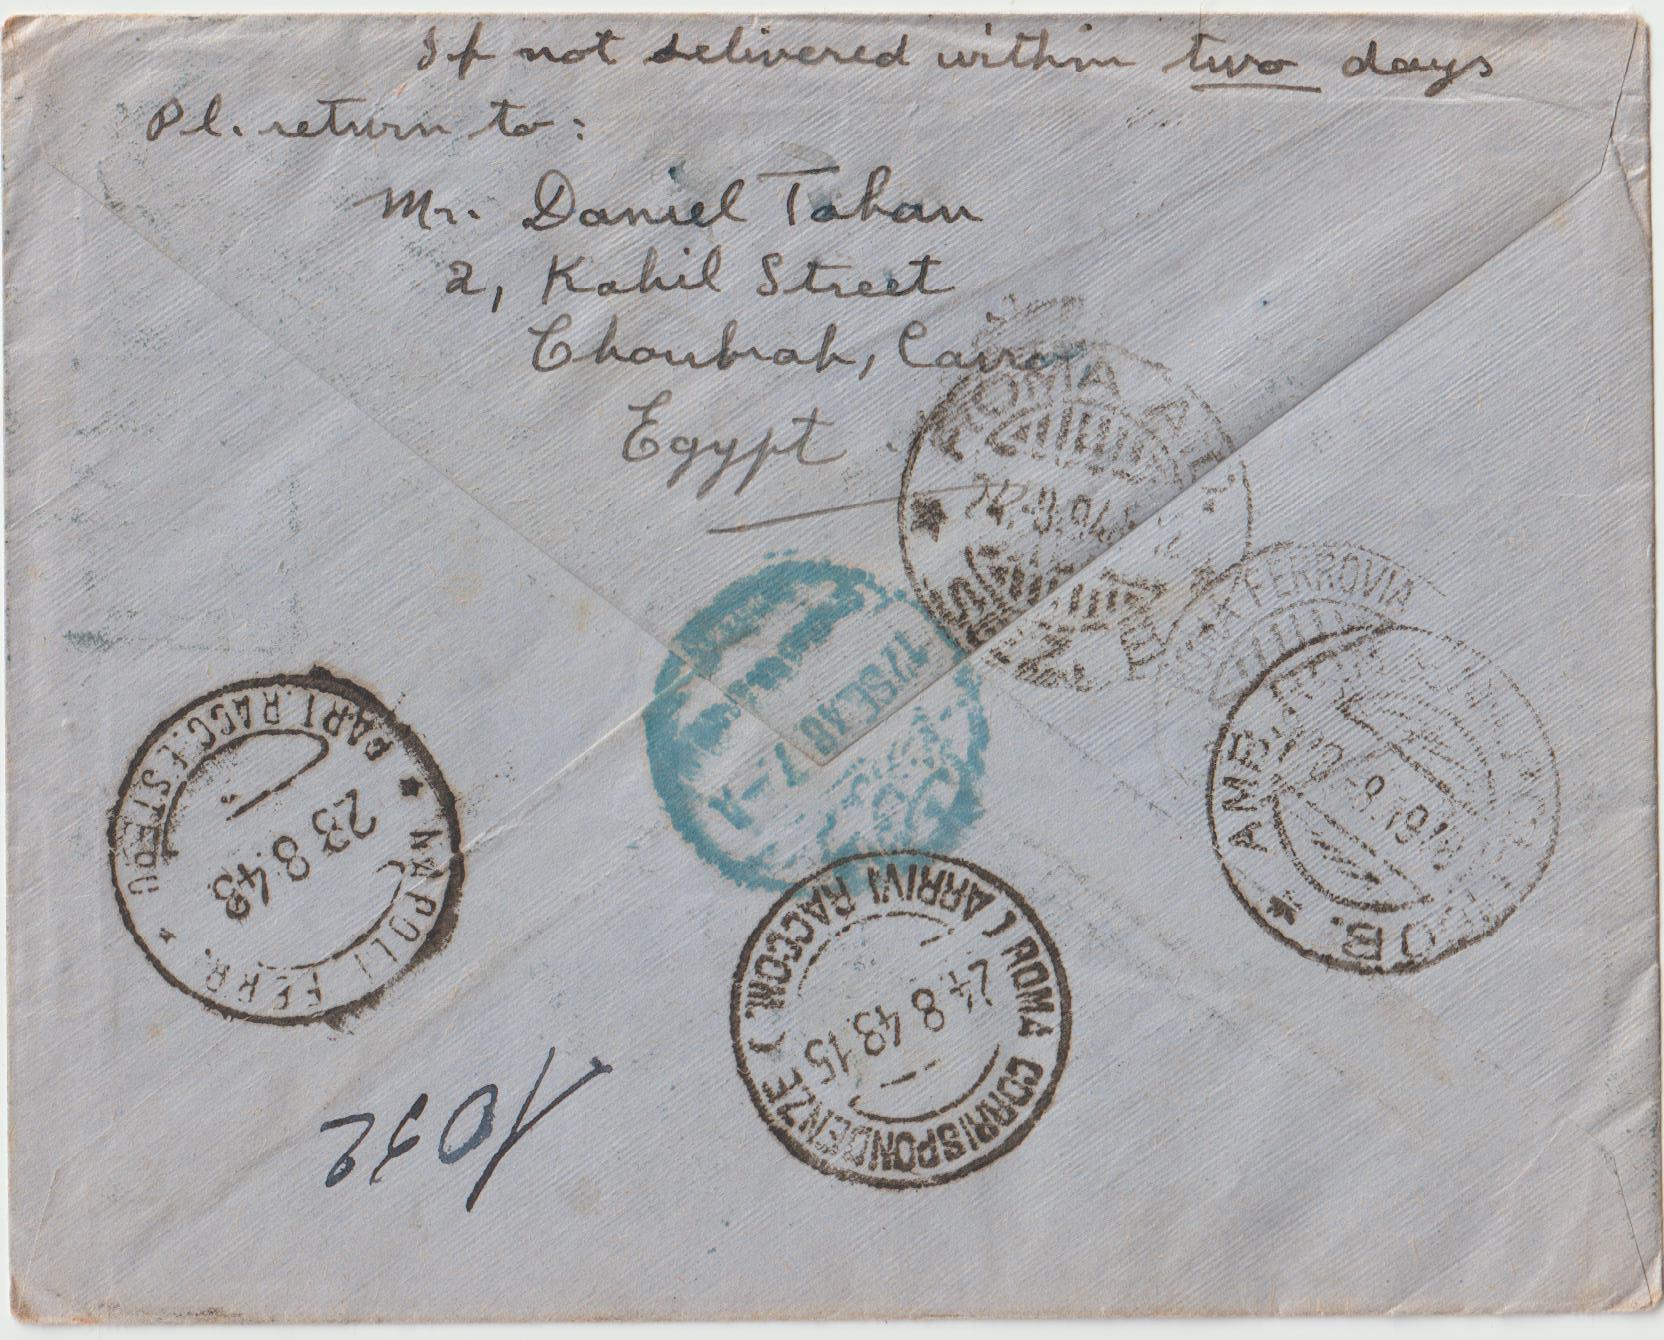 If not delivered within two days
Pl. return to:
Mr. Daniel Tahan
2, Kahil Street
Choubrah, Cairo
Egypt
ROMA
FERROVIA
AMB.
17 SE 48 7-
NAPOLI FERR.
PART. RACC. ESTERO
23 8.48
ROMA CORRISPONDENZE
(ARRIVI RACCOM.)
24 8 48 15